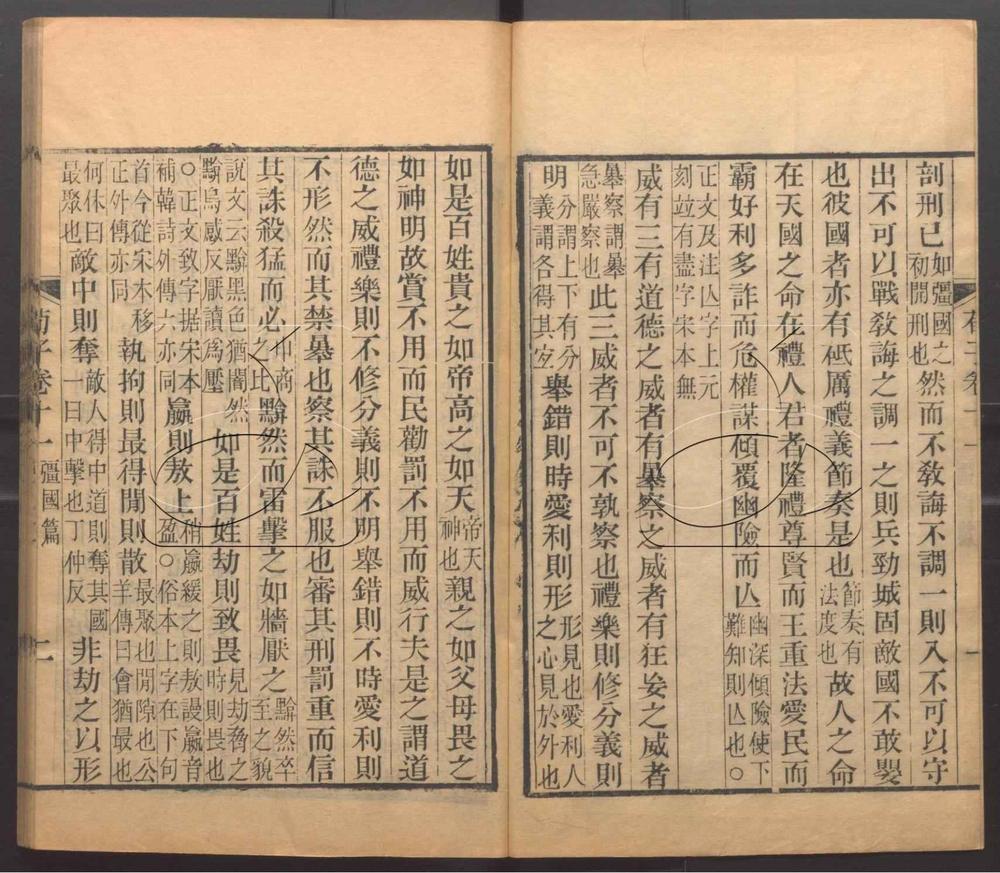 剖刑已如彊國之初開刑也然而不敎誨不調一則入不可以守
出不可以戰敎誨之調一之則兵勁城固敵國不敢嬰
也彼國者亦有砥厲禮義節奏是也節奏有法度也故人之命
在天國之命在禮人君者隆禮尊賢而王重法愛民而
霸好利多詐而危權謀傾覆幽險而亾幽深傾險使下難知則亾也○
正文及注亾字上元刻竝有盡字宋本無
威有三有道德之威者有暴察之威者有狂妄之威者
暴察謂暴急嚴察也此三威者不可不孰察也禮樂則修分義則
明分謂上下有分義謂各得其宐舉錯則時愛利則形形見也愛利人之心見於外也
如是百姓貴之如帝高之如天帝天神也親之如父母畏之
如神明故賞不用而民勸罰不用而威行夫是之謂道
德之威禮樂則不修分義則不明舉錯則不時愛利則
不形然而其禁暴也察其誅不服也審其刑罰重而信
其誅殺猛而必申商之比黭然而雷擊之如牆厭之黭然卒至之貌
說文云黭黑色猶闇然黭烏感反厭讀爲壓如是百姓劫則致畏見劫脅之時則畏也
○正文致字据宋本補韓詩外傳六亦同嬴則敖上稍嬴緩之則敖謾嬴音盈○俗本上字在下句
首今從宋本移正外傳亦同執拘則最得閒則散最聚也閒隙也公羊傳曰會猶最也
何休曰最聚也敵中則奪敵人得中道則奪其國一曰中擊也丁仲反非劫之以形
荀子卷十一 彊國篇 二